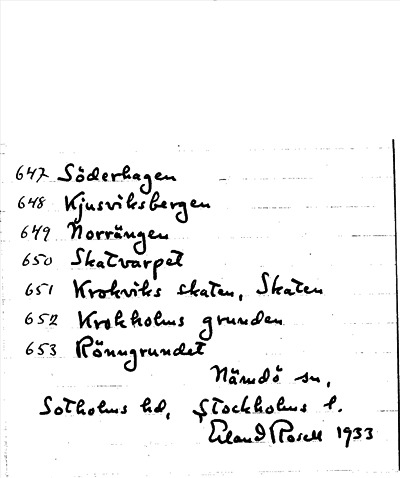 647 Söderhagen
648 Kjusviksbergen
649 Norrängen
650 Skatvarpet
651 Krokviks skaten, Skaten
652 Krokholms grunden
653 Rönngrundet
Nämdö sn,
Sotholms hd, Stockholms l.
Erland Rosell 1933